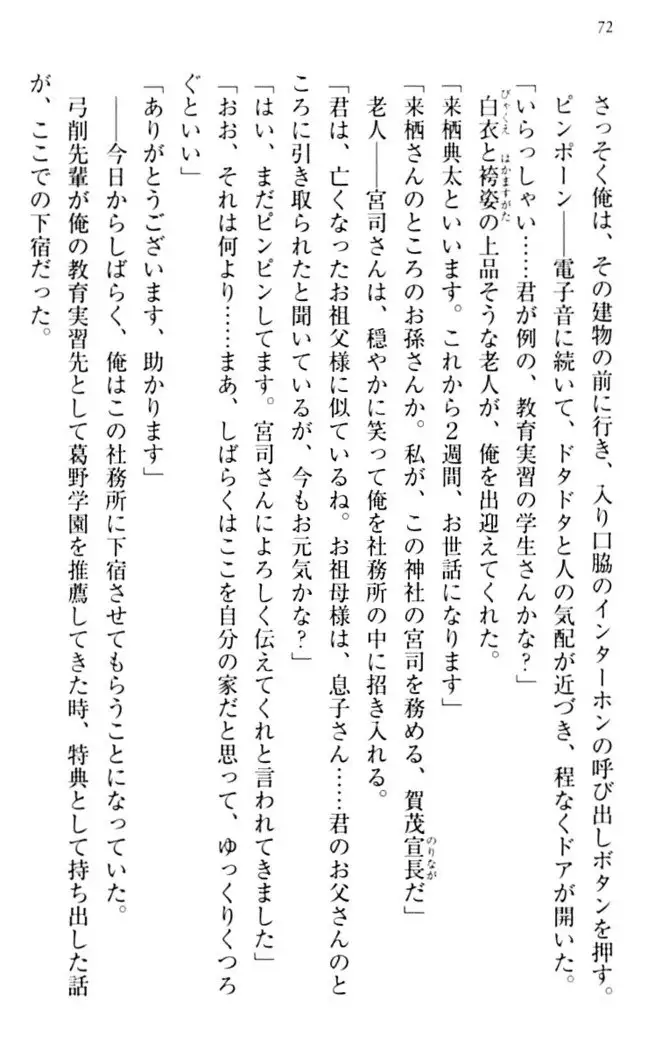 72
さっそく俺は、その建物の前に行き、入り口脇のインターホンの呼び出しボタンを押す。
ピンポーン――電子音に続いて、ドタドタと人の気配が近づき、程なくドアが開いた。
「いらっしゃい……君が例の、教育実習の学生さんかな？」
白衣と袴姿の上品そうな老人が、俺を出迎えてくれた。
「来栖典太といいます。これから２週間、お世話になります」
「来栖さんのところのお孫さんか。私が、この神社の宮司を務める、賀茂宣長だ」
老人――宮司さんは、穏やかに笑って俺を社務所の中に招き入れる。
「君は、亡くなったお祖父様に似ているね。お祖母様は、息子さん……君のお父さんのと
ころに引き取られたと聞いているが、今もお元気かな？」
「はい、まだピンピンしてます。宮司さんによろしく伝えてくれと言われてきました」
「おお、それは何より……まあ、しばらくはここを自分の家だと思って、ゆっくりくつろ
ぐといい」
「ありがとうございます、助かります」
――今日からしばらく、俺はこの社務所に下宿させてもらうことになっていた。
弓削先輩が俺の教育実習先として葛野学園を推薦してきた時、特典として持ち出した話
が、ここでの下宿だった。